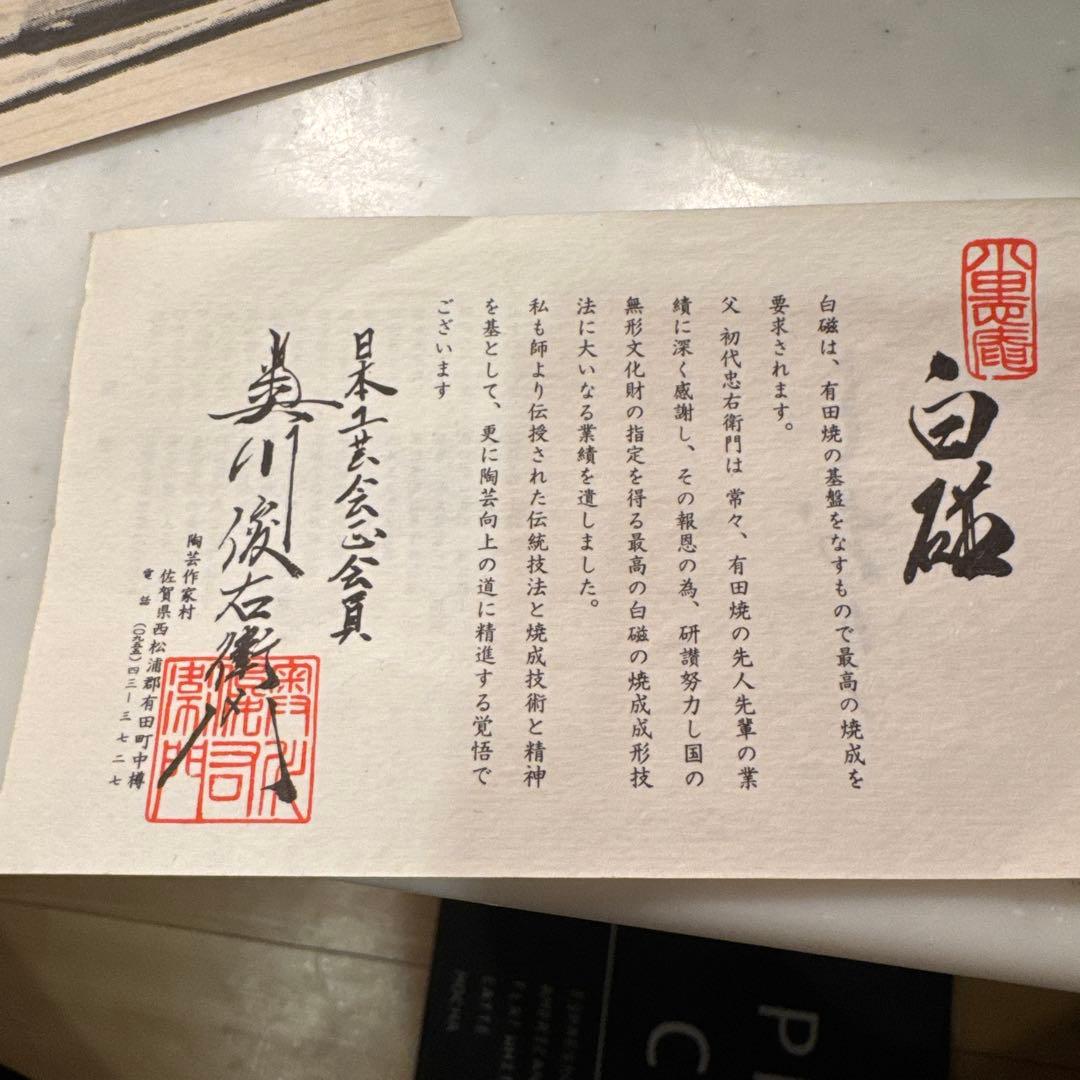 白磁
白磁は、有田焼の基盤をなすもので最高の焼成を
要求されます。
父 初代忠右衛門は 常々、有田焼の先人先輩の業
績に深く感謝し、その報恩の為、研讃努力し国の
無形文化財の指定を得る最高の白磁の焼成成形技
法に大いなる業績を遺しました。
私も師より伝授された伝統技法と焼成技術と精神
を基として、更に陶芸向上の道に精進する覚悟で
ございます
日本工芸会正会員
奥川俊右衛門
陶芸作家村
佐賀県西松浦郡有田町中樽
電話 (〇九五五)四三−三七二七